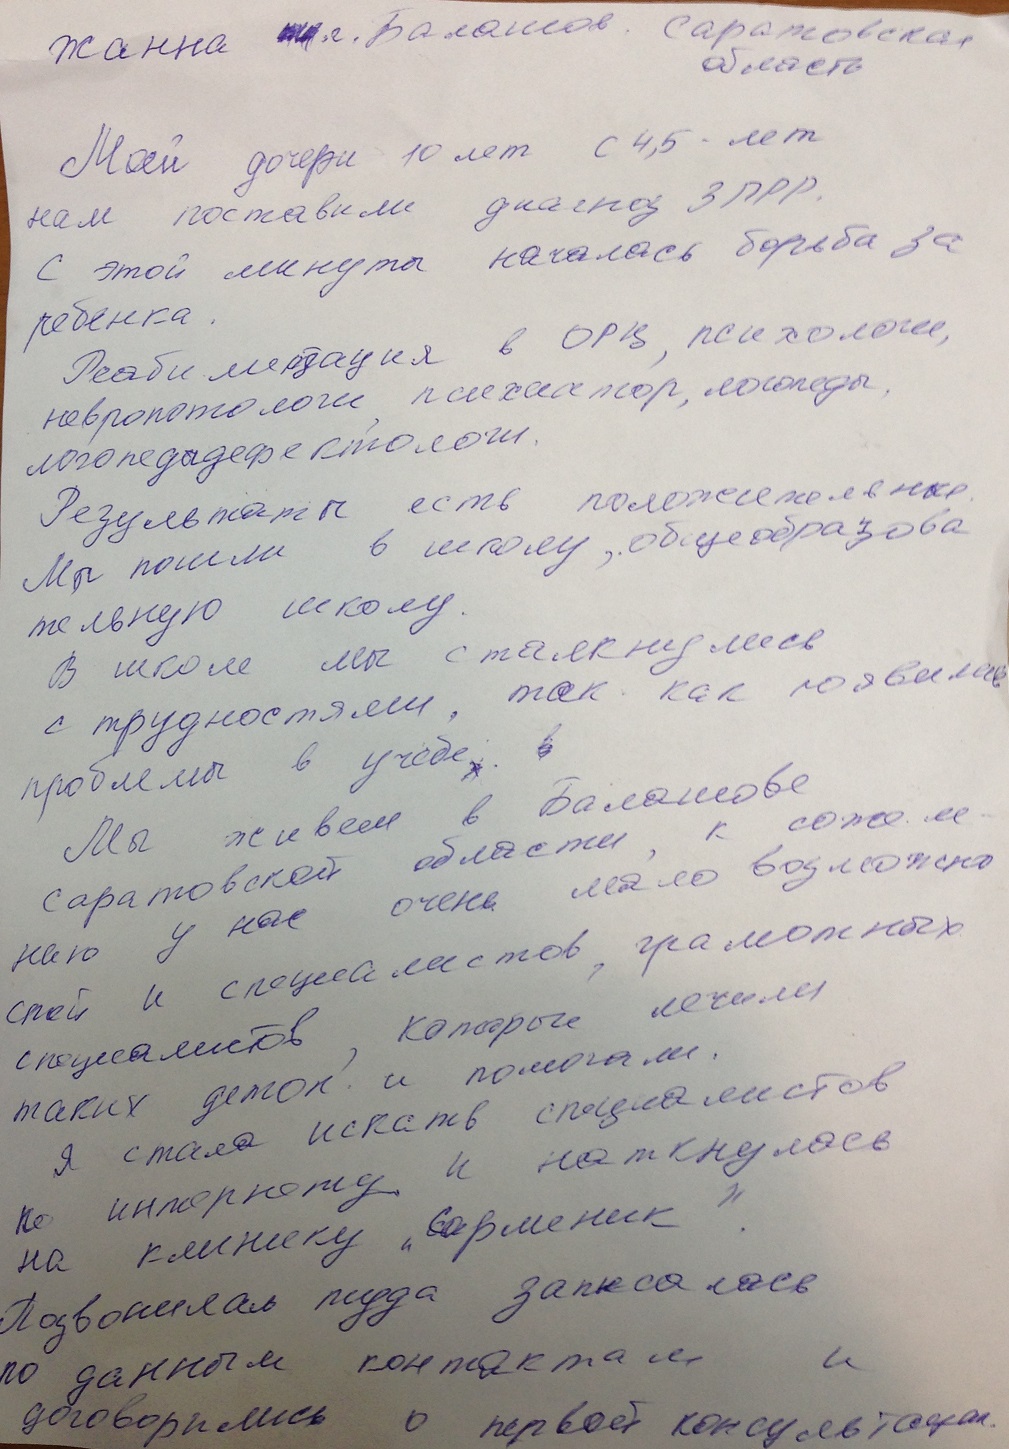 Жанна г. Балашов. Саратовская
область
Моей дочери 10 лет с 4,5 - лет
нам поставили диагноз ЗПРР.
С этой минуты началась борьба за
ребенка.
Реабилитация в ОРЦ, психологи,
невропотологи, психиатор, логопеды,
логопедыдефектологи.
Результаты есть положительные.
Мы пошли в школу, общеобразова
тельную школу.
В школе мы сталкнулись
с трудностями, так как появились
проблемы в учебе. в
Мы живем в Балашове
Саратовской области, к сожеле-
нию у нас очень мало возможно
стей и специалистов, грамотных
специалистов, которые лечили
таких деток и помогали.
Я стала искать специалистов
по интернету и наткнулась
на клинику „Сарменик".
Позвонилаль туда записалась
по данным контактам и
договорились о первой консультации.